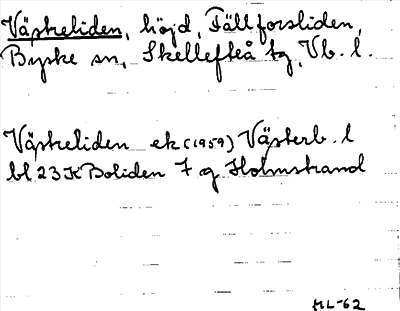 Väskeliden, höjd, Fällforsliden,
Byske sn, Skellefteå tg, Vb. l.
Väskeliden ek (1959) Västerb. l
bl 23 K Boliden 7 g Holmstrand
ML-62